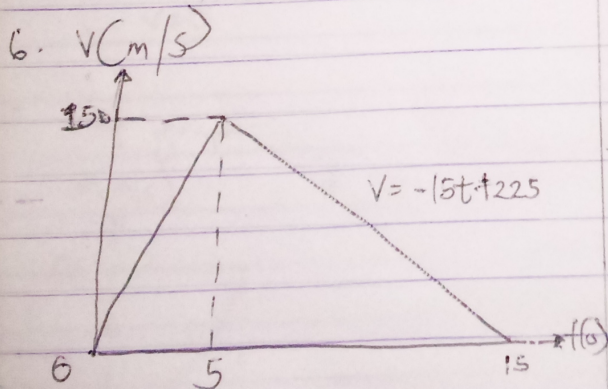 6. V(m/s)
150
V = -15t+225
0 5 15 t(s)